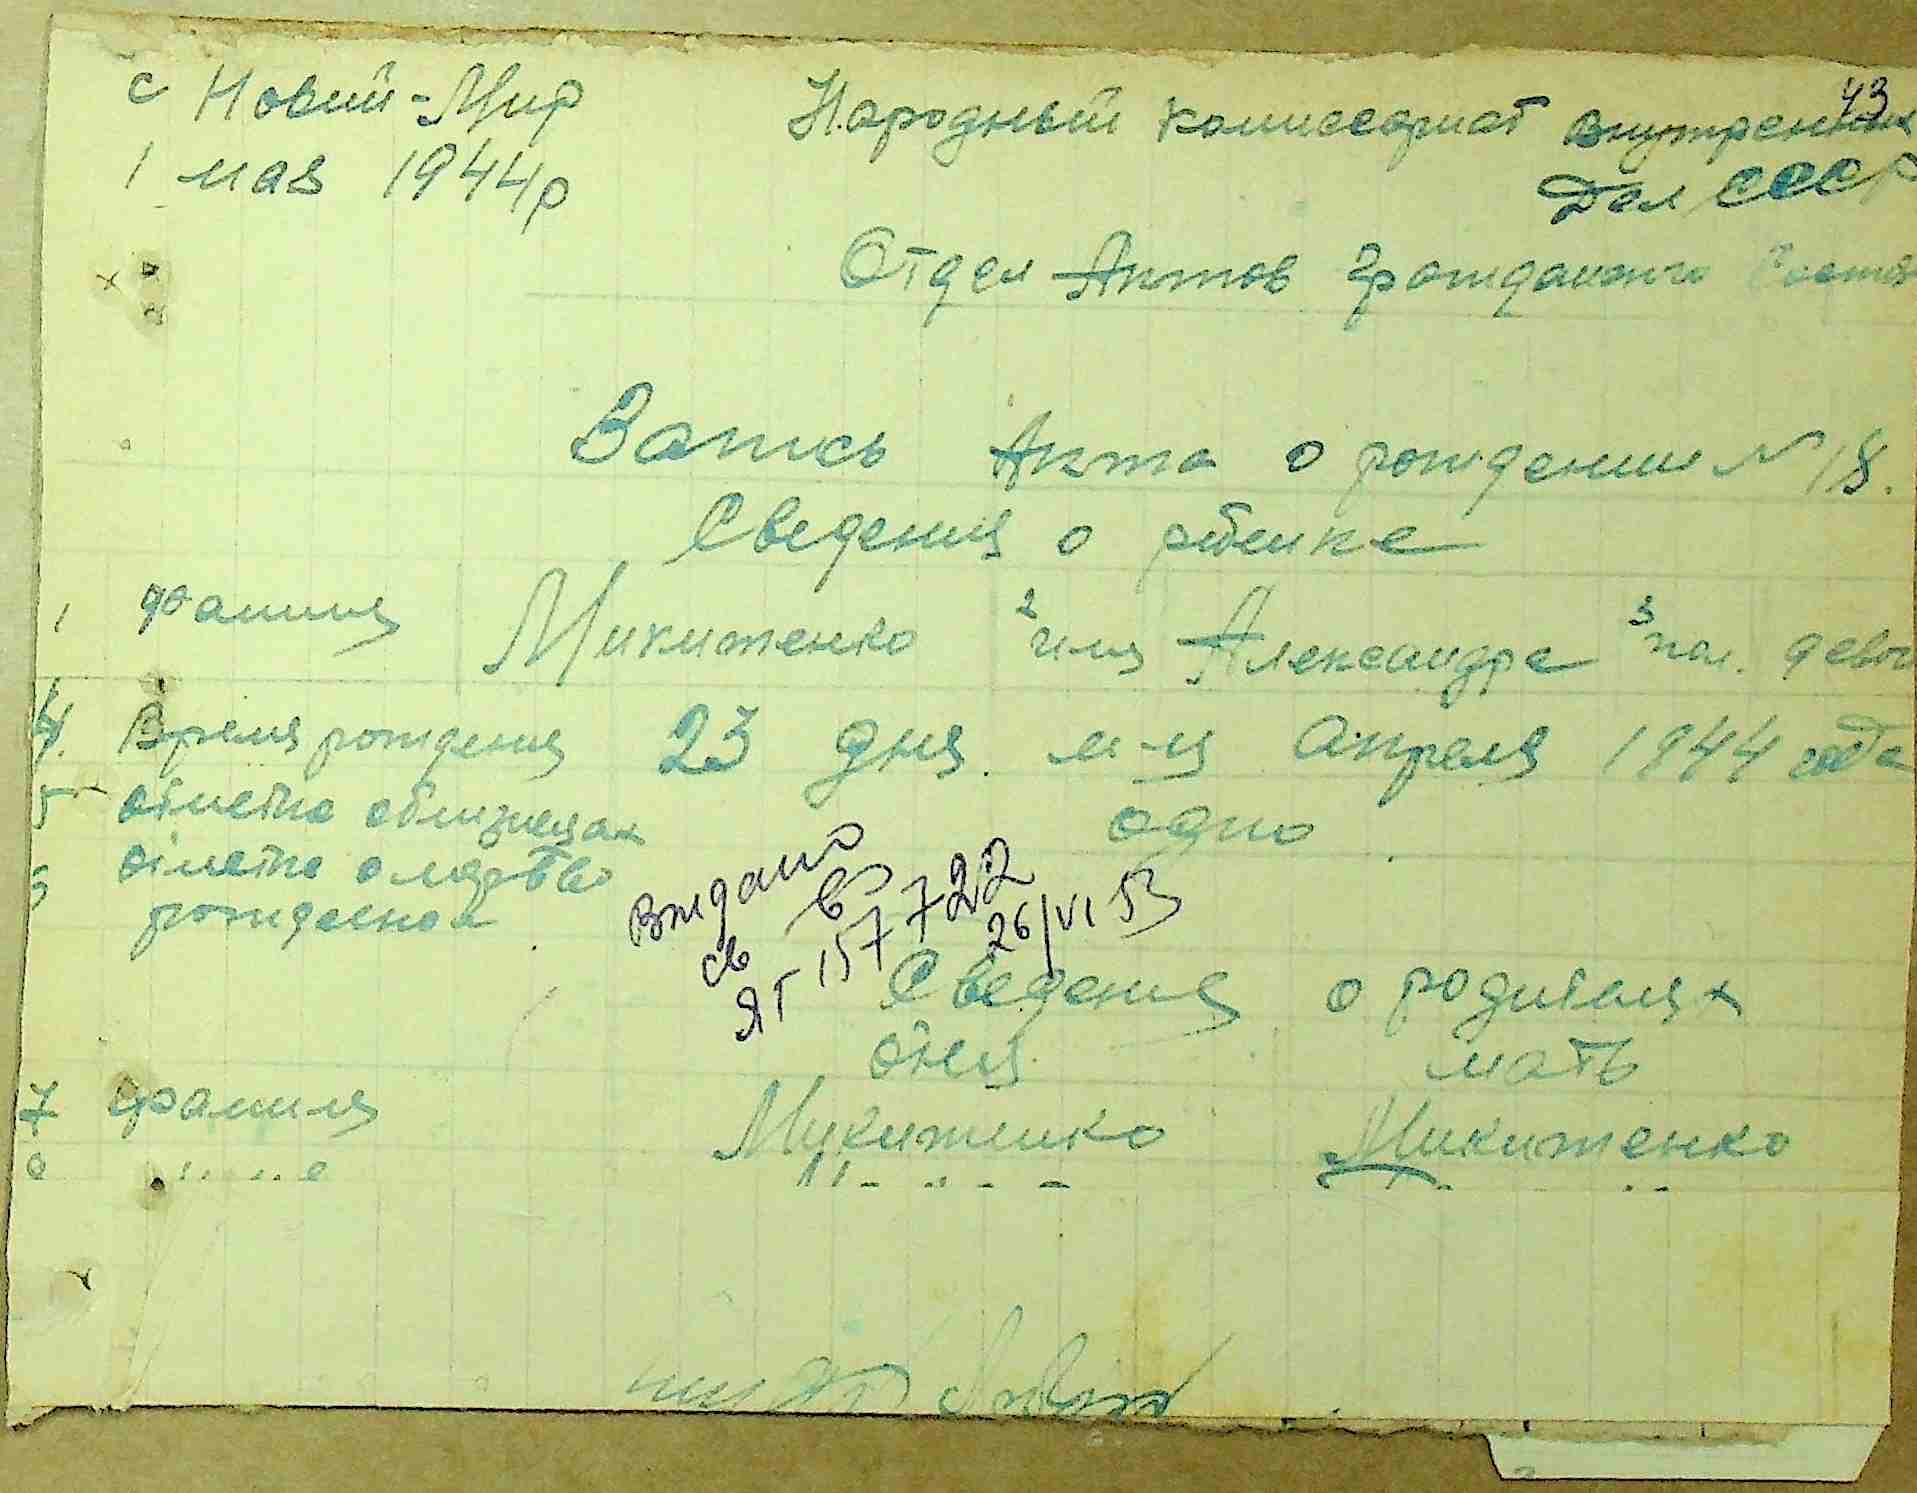 43
с Новий-Мир Народный комиссариат внутренних
1 мая 1944р Дел СССР
Отдел Актов Гражданского
Запись Акта о рождении № 18.
Сведения о ребенке
1 фамилия Микитенко 2 имя Александра 3 пол. девоч
4. Время рождения 23 дня м-ц Апреля 1944 года
5 отметка облизнецах одно
6 отметка о мертво
рожденом
Видано
св во
ЯГ 157722
26/VI 53
Сведения о родителях
отец мать
7 фамилия Микитенко Микитенко